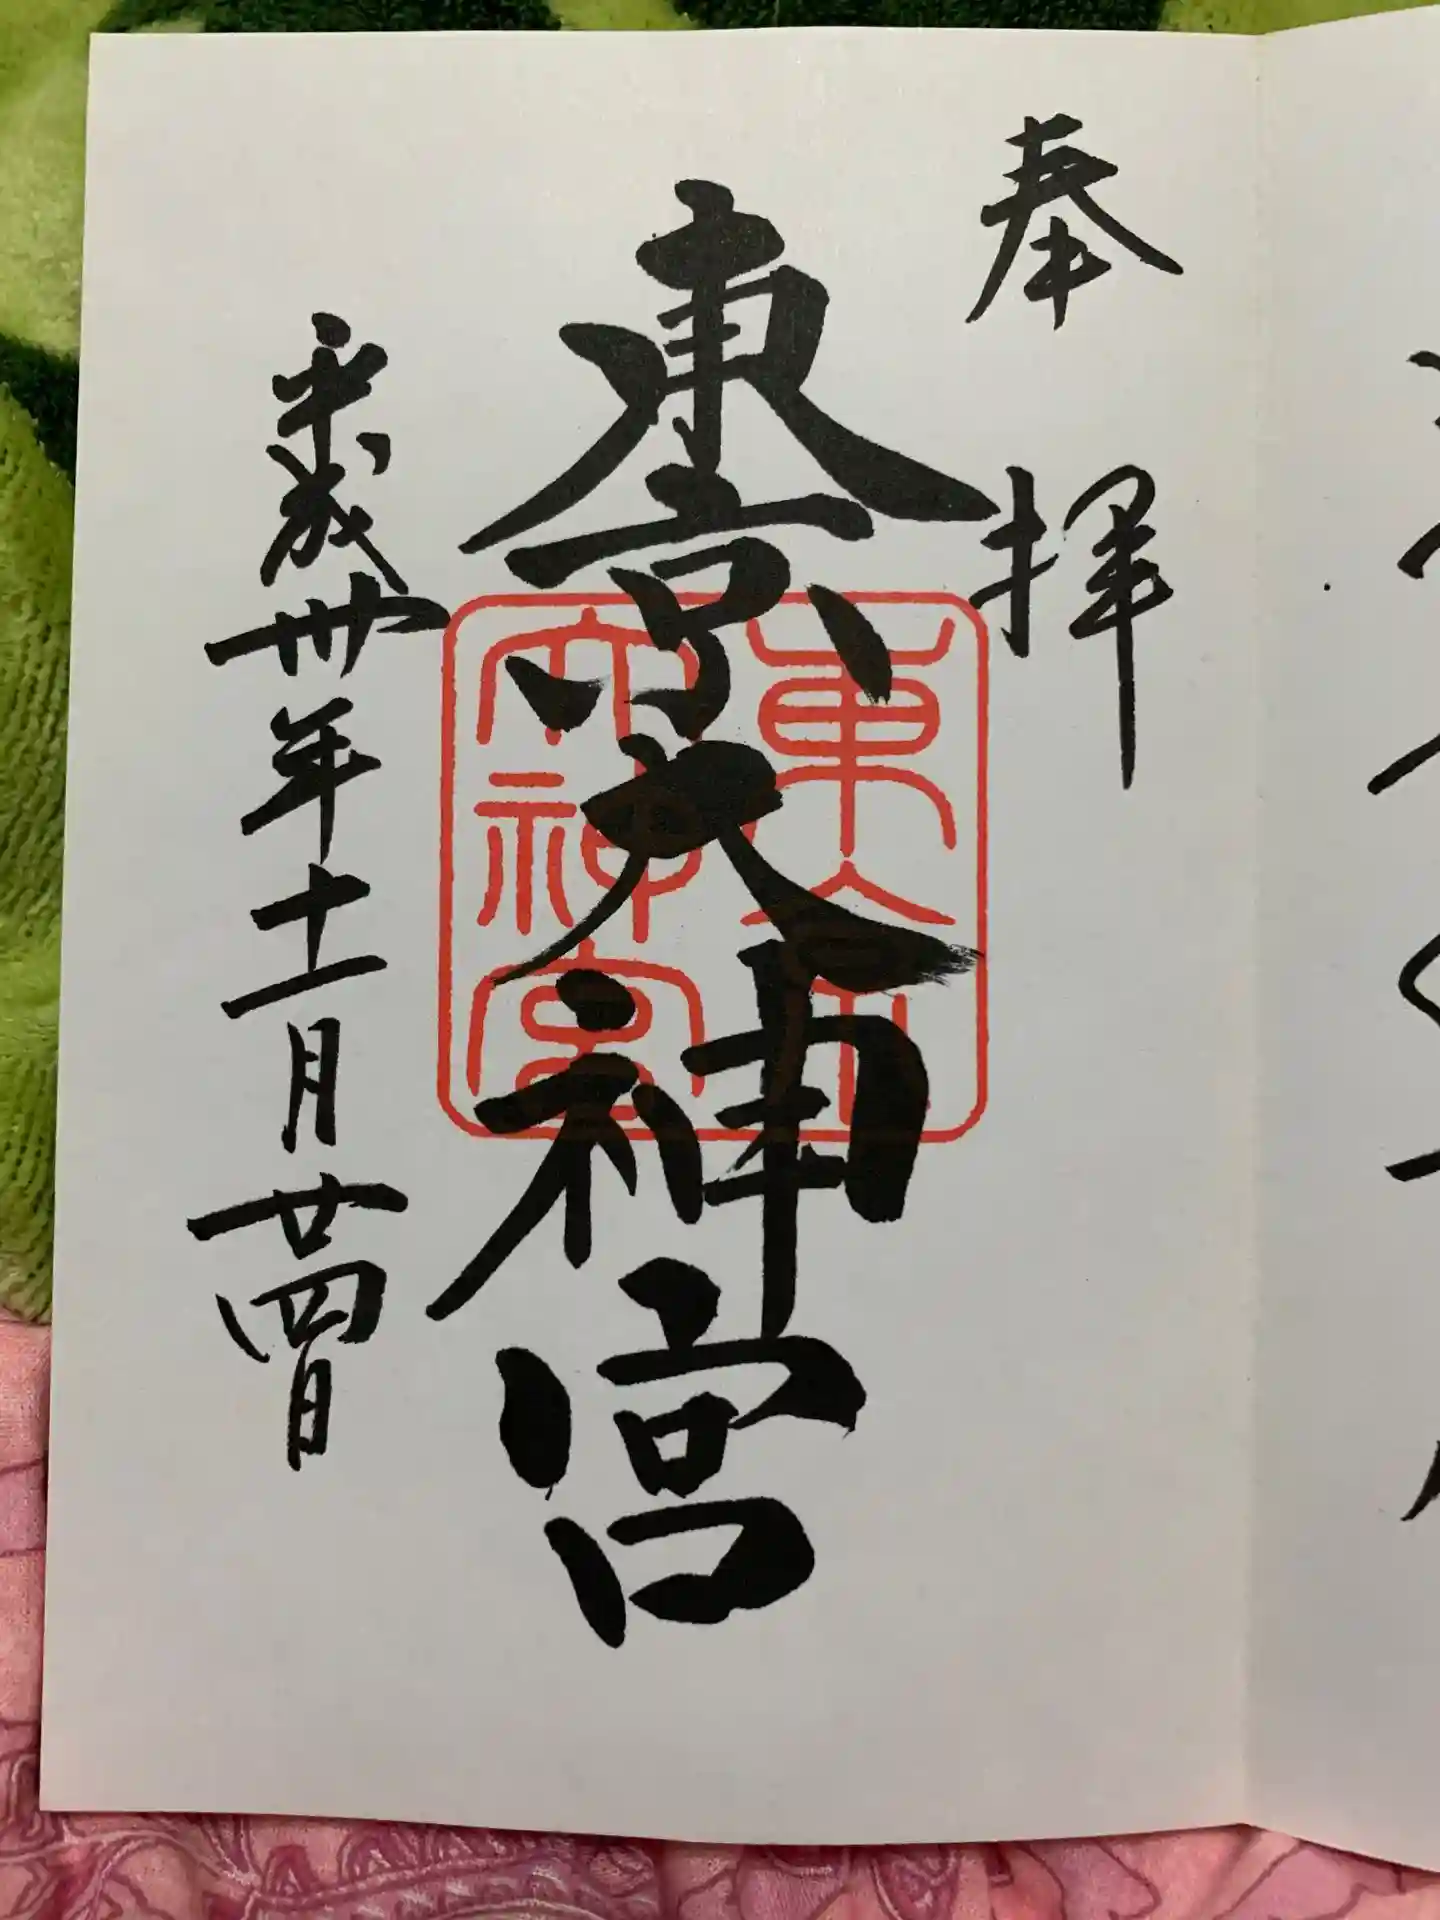 奉拝
東京大神宮
東京
大神宮
平成卅年十一月廿四日